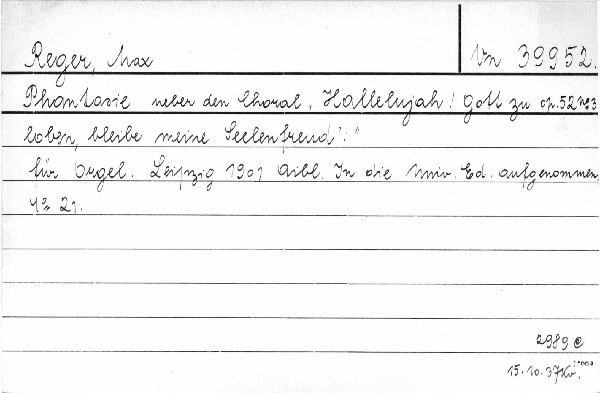 Reger, Max Vn 39952.
Phantasie ueber den Choral „Hallelujah! Gott zu op. 52 No 3
loben, bleibe meine Seelenfreud'!"
für Orgel. Leipzig 1901 Aibl. In die Univ. Ed. aufgenommen.
4° 21.
2989 e
15. 10. 37 Kv.